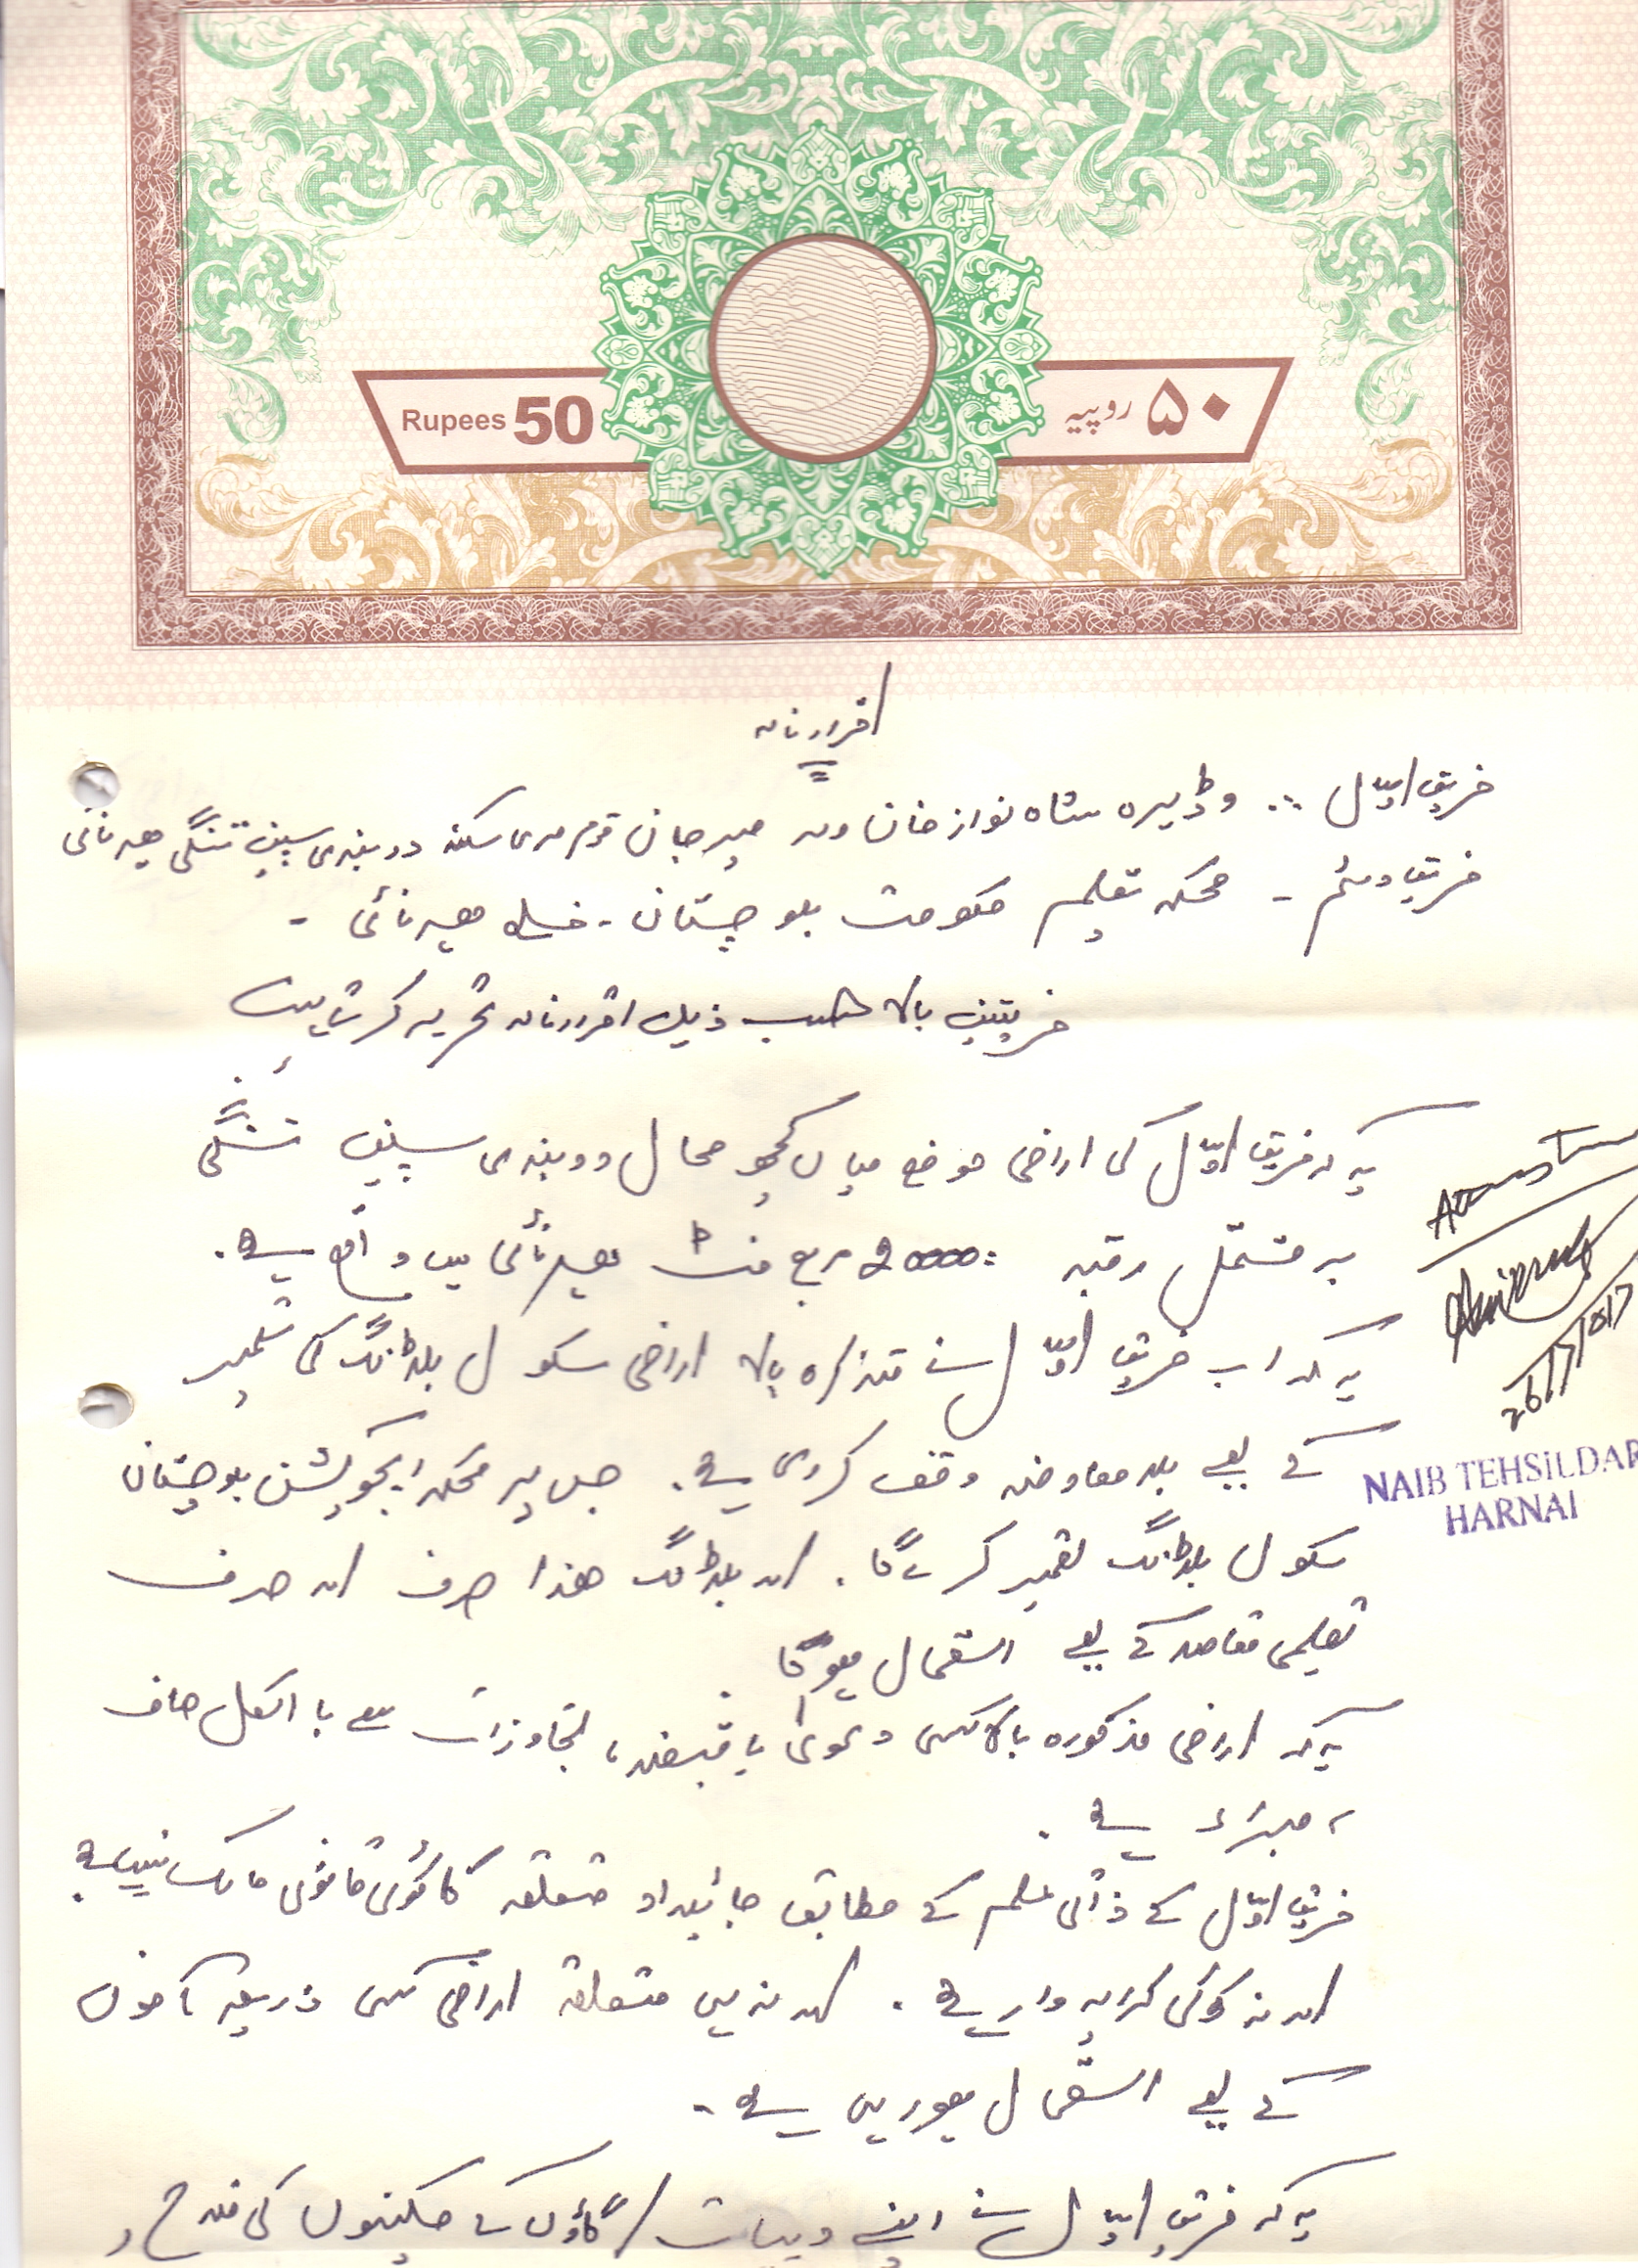 Rupees 50
۵۰ روپیہ
اقرارنامہ
فریق اوّل :. وڈیرہ شاہ نواز خان ولد میر جان قوم مری سکنہ دوبندی سپین تنگی ہرنائی
فریق دوئم - محکمہ تعلیم حکومت بلوچستان - ضلع ہرنائی -
فریقین بالا حسب ذیل اقرارنامہ تحریر کرتے ہیں
یہ کہ فریق اوّل کی اراضی موضع میاں کچھ محال دوبندی سپین تنگی
پر مشتمل رقبہ مربع فٹ ہرنائی میں واقع ہے.
یہ کہ اب فریق اوّل نے متذکرہ بالا اراضی سکول بلڈنگ کی تعمیر
کے لیے بلا معاوضہ وقف کردی ہے. جس پر محکمہ ایجوکیشن بلوچستان
Attested
26/7/017
NAIB TEHSILDAR
HARNAI
سکول بلڈنگ تعمیر کرے گا. اور بلڈنگ ھذا صرف اور صرف
تعلیمی مقاصد کے لیے استعمال ہوگا
یہ کہ اراضی مذکورہ بالا کسی دعویٰ یا قبضہ، تجاوزات سے با الکل صاف
، مبرّاء ہے.
فریق اوّل کے ذاتی علم کے مطابق جائیداد متعلقہ کا کوئی قانونی مالک نہیں ہے
اور نہ کوئی کرایہ دار ہے. اور نہ ہی متعلقہ اراضی کسی ذریعہ
کے لیے استعمال ہو رہی ہے -
یہ کہ فریق اوّل نے اپنے دیہات/گاؤں کے مکینوں کی فلاح و